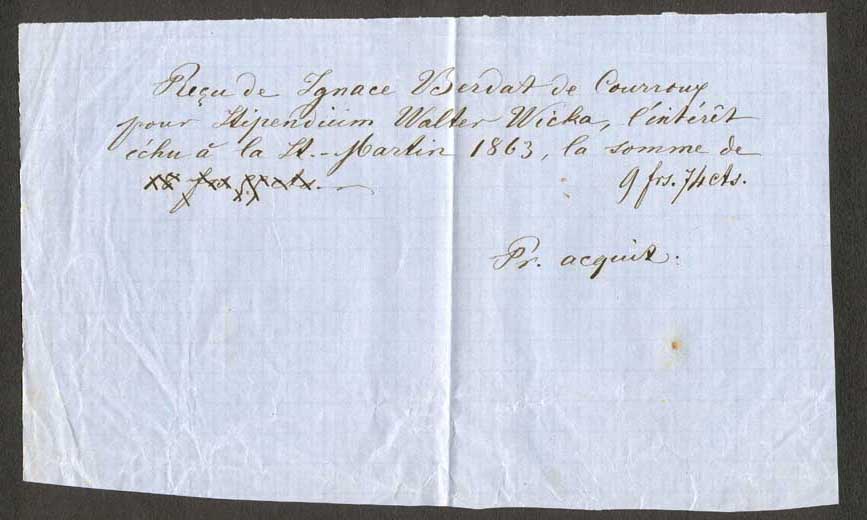 Reçu de Ignace Berdat de Courroux
pour Stipendium Walter Wicka, l'intérêt
échu à la St.-Martin 1863, la somme de
9 frs. 74 cts.
Pr. acquit.